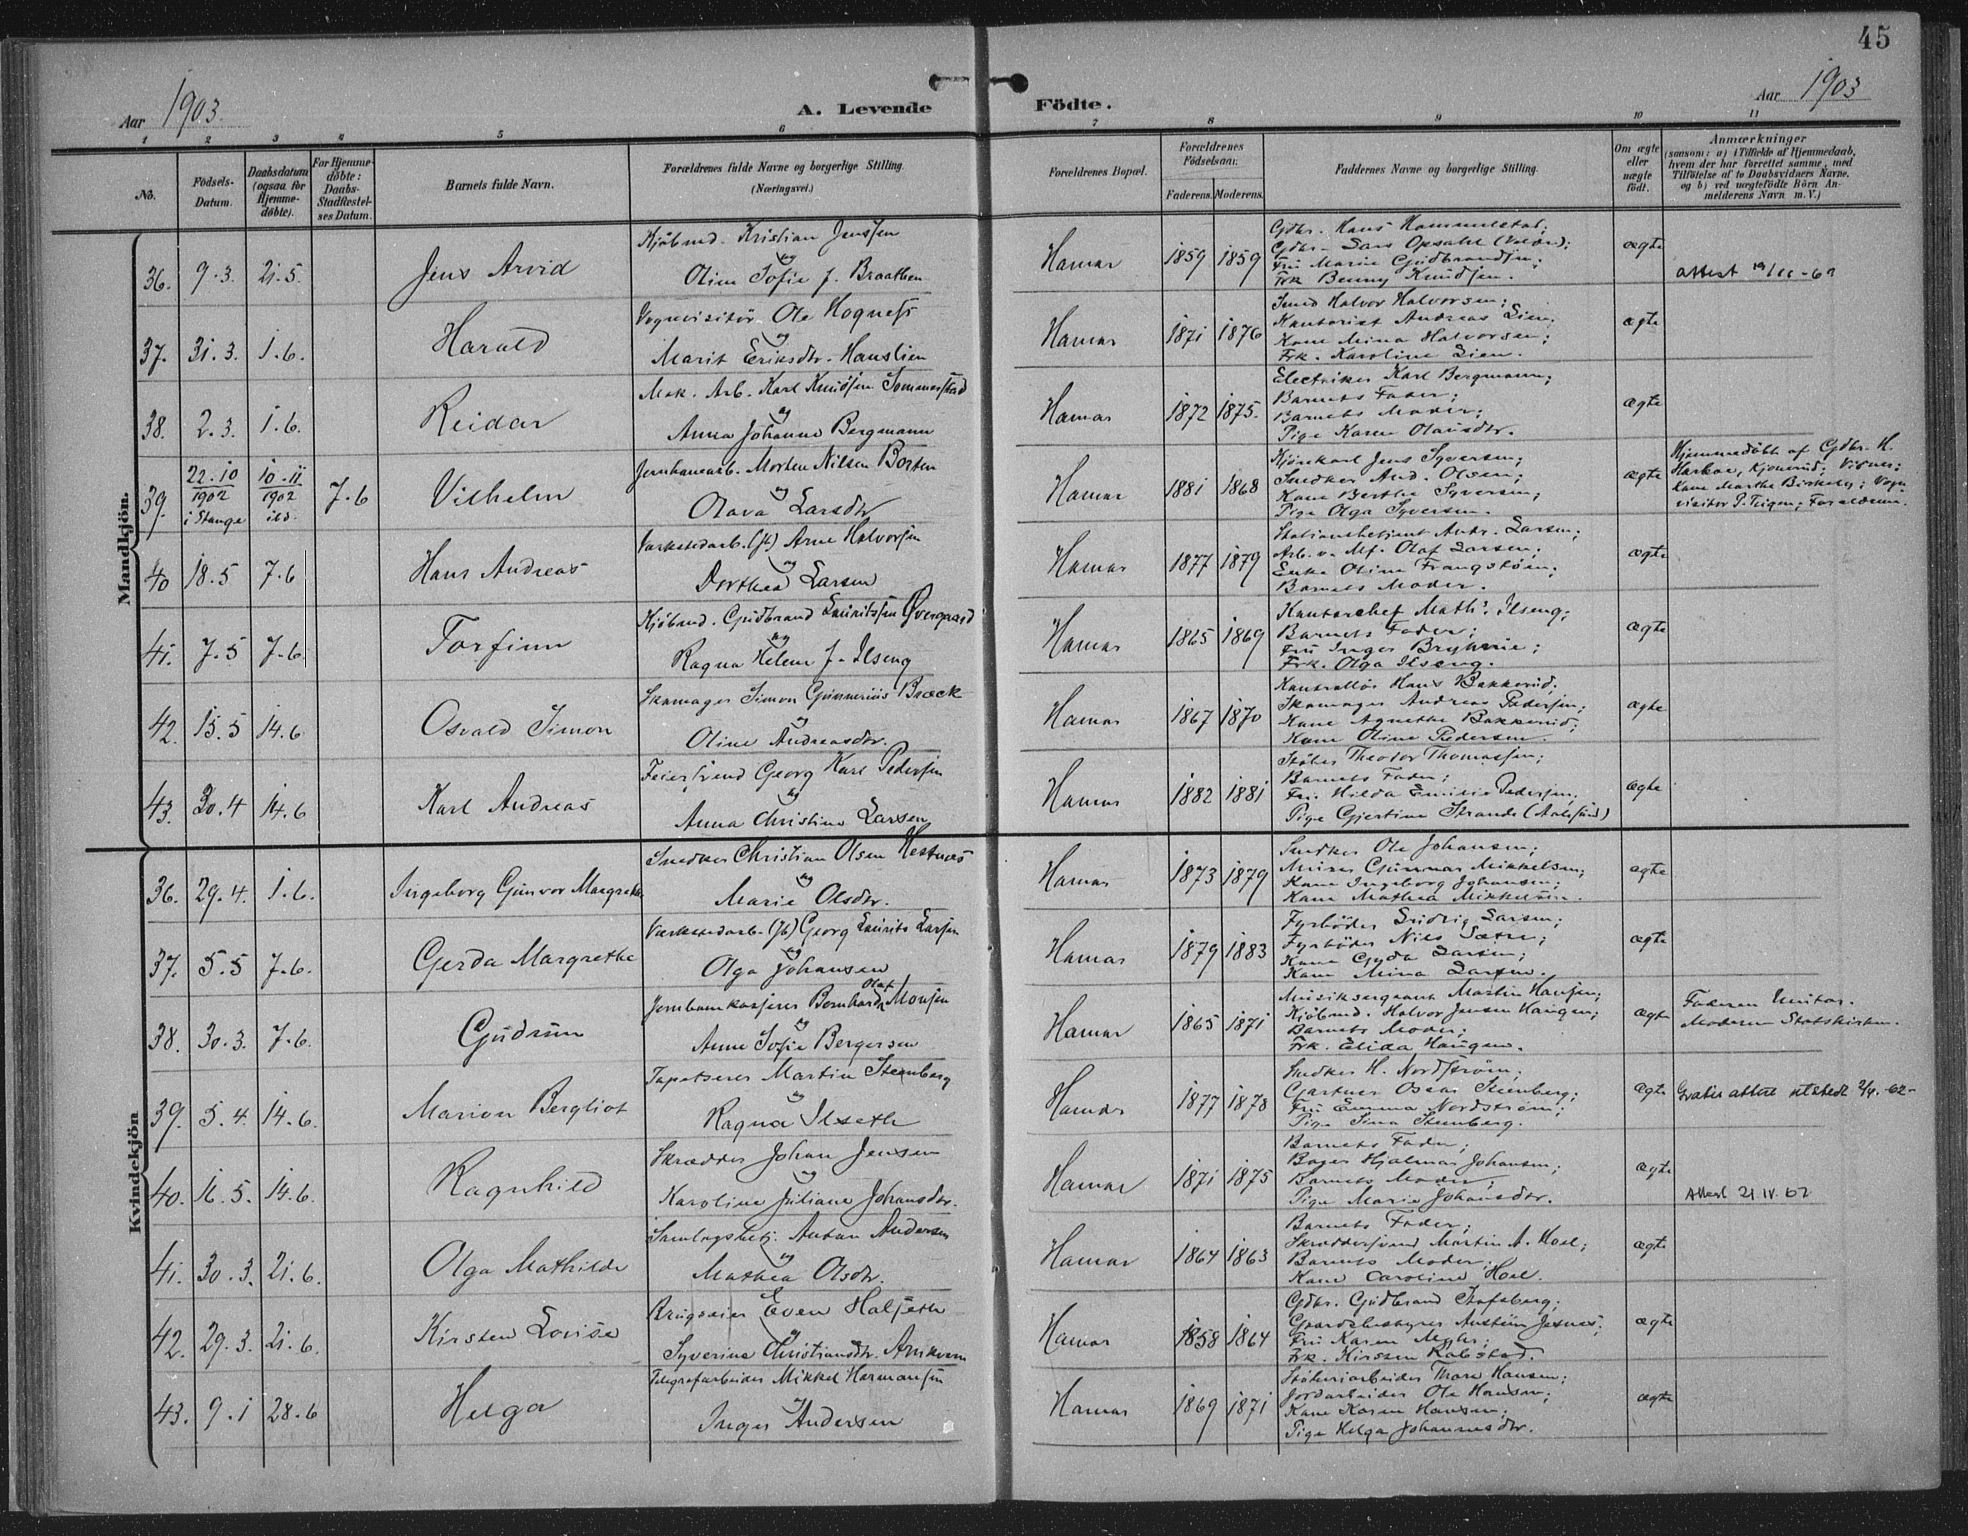 45
Aar 1903.
A. Levende Födte.
Aar 1903
1 2 3 4 5 6 7 8 9 10 11
No.
Födsels-Datum.
Daabsdatum (ogsaa for Hjemmedøbte).
For Hjemmedøbte: Daabs-Stadfæstelses Datum.
Barnets fulde Navn.
Forældrenes fulde Navne og borgerlige Stilling.
(Næringsvei.)
Forældrenes Bopæl.
Forældrenes Födselsaar.
Faderens. Moderens.
Faddernes Navne og borgerlige Stilling.
Om ægte eller uægte födt.
Anmærkninger
(saasom: a) i Tilfælde af Hjemmedaab, hvem der har forrettet samme, med Tilföielse af to Daabsvidners Navne, og b) ved uægtefödte Börn Anmelderens Navn m. V.)
Mandkjön.
36. 9.3. 21.5. Jens Arvid
Kjöbmd. Kristian Jenssen
og
Oline Sofie J. Braathen
Hamar 1859 1859
Gdbr. Hans Hommelstad;
Gdbr. Lars Opsahl (Valør);
Fru Marie Gudbrandsen;
Frk. Benny Knudsen.
ægte
attest
37. 31.3. 1.6. Harald
Vognvisitör Ole Hogness
og
Marit Eriksdtr. Hanslien
Hamar 1871 1876
Smed Halvor Halvorsen;
Kontorist Andreas Lien;
Kone Mina Halvorsen;
Frk. Karoline Lien.
ægte
38. 2.3. 1.6. Reidar
Mek. Arb. Karl Knudsen Sommerstad
og
Anna Johanne Bergmann
Hamar 1872 1875.
Electriker Karl Bergmann;
Barnets Fader;
Barnets Moder;
Pige Karen Olausdtr.
ægte
39. 22.10 1902 i Stange 10.11 1902 ibd. 7.6 Vilhelm
Jernbanearb. Morten Nilsen Borten
og
Olava Larsdtr
Hamar 1881 1868
Kjörekarl Jens Syversen;
Snedker And. Olsen;
Kone Berthe Syversen;
Pige Olga Syversen.
ægte
Hjemmedöbt af Gdbr. H.
Kone Marthe Birkely; Vogn-
visitör P. Teigen; Forældrene.
40 18.5 7.6 Hans Andreas
Værkstedarb. (Jb) Arne Halvorsen
og
Dorthea Larsen
Hamar 1877 1879
Stationsbetjent Andr. Larsen;
Arb. v. Mf. Olaf Larsen;
Enke Oline Frangstøen;
Barnets Moder.
ægte
41. 7.5 7.6 Torfinn
Kjöbmd. Gudbrand Lauritssen Övergaard
og
Ragna Helene J. Ilseng
Hamar 1865 1869
Kontorchef Math. Ilseng;
Barnets Fader;
Fru Inger Bryhnie;
Frk. Olga Ilseng.
ægte
42. 15.5 14.6 Osvald Simon
Skomager Simon Gunnerius Bræck
og
Oline Andreasdtr.
Hamar 1867 1870
Kontrollör Hans Bakkerud;
Skomager Andreas Pedersen;
Kone Agnethe Bakkerud;
Kone Oline Pedersen.
ægte
43. 30.4 14.6 Karl Andreas
Feiersvend Georg Karl Pedersen
og
Anna Christine Larsen
Hamar 1882 1881
Støber Theodor Thomassen;
Barnets Fader;
Fru Hilda Emilie Pedersen;
Pige Gjertine Strande (Aalesund)
ægte
Kvindekjön
36. 29.4. 1.6. Ingeborg Gunvor Margrethe
Snedker Christian Olsen Hestnæs
og
Marie Olsdtr.
Hamar 1873 1879
Snedker Ole Johansen;
Murer Gunnar Mikkelsen;
Kone Ingeborg Johansen;
Kone Mathea Mikkelsen.
ægte
37. 5.5 7.6. Gerda Margrethe
Værkstedarb. (Jb) Georg Laurits Larsen
og
Olga Johansen
Hamar 1879 1883
Fyrböder Ludvig Larsen;
Fyrböder Nils Sætre;
Kone Gyda Larsen;
Kone Mina Larsen.
ægte
38. 30.3. 7.6. Gudrun
Jernbanekasserer Bernhard Olaf Monsen
og
Anne Sofie Bergersen
Hamar 1865 1871
Musiksergeant Martin Hansen;
Kjöbmd. Halvor Jensen Haugen;
Barnets Moder;
Frk. Elida Haugen.
ægte
Faderen Unitar.
Moderen Statskirken.
39. 5.4. 14.6. Marion Bergliot
Tapetserer Martin Steenberg
og
Ragna Ilseth
Hamar 1877 1878
Snedker H. Nordström;
Gartner Oscar Steenberg;
Fru Emma Nordström;
Pige Sina Steenberg.
ægte
Gratis attest utstedt 2/4.-62-
40. 16.5. 14.6. Ragnhild
Skrædder Johan Jensen
og
Karoline Juliane Johansdtr.
Hamar 1871 1875
Barnets Fader;
Bager Hjalmar Johansen;
Barnets Moder;
Pige Marie Johansdtr.
ægte
Attest 21.IV.62
41. 30.3. 21.6. Olga Mathilde
Samlagsbetj. Anton Andersen
og
Mathea Olsdtr.
Hamar 1864 1863
Barnets Fader;
Skræddersvend Martin A. Hoel;
Barnets Moder;
Kone Caroline Hoel.
ægte
42. 29.3. 21.6. Kirsten Lovise
Brugseier Even Halseth
og
Syverine Christiansdtr. Arnkvern
Hamar 1858 1864
Gdbr. Gudbrand Stafsberg;
Gaardsbestyrer Austein Jesnes;
Fru Karen Myhr;
Frk. Kirsten Rabstad.
ægte
43. 9.1 28.6 Helga
Telegrafarbeider Mikkel Hermansen
og
Inger Andersen
Hamar 1869 1871
Støberiarbeider Thore Hansen;
Jordarbeider Ole Hansen;
Kone Karen Hansen;
Pige Helga Johannesdtr.
ægte